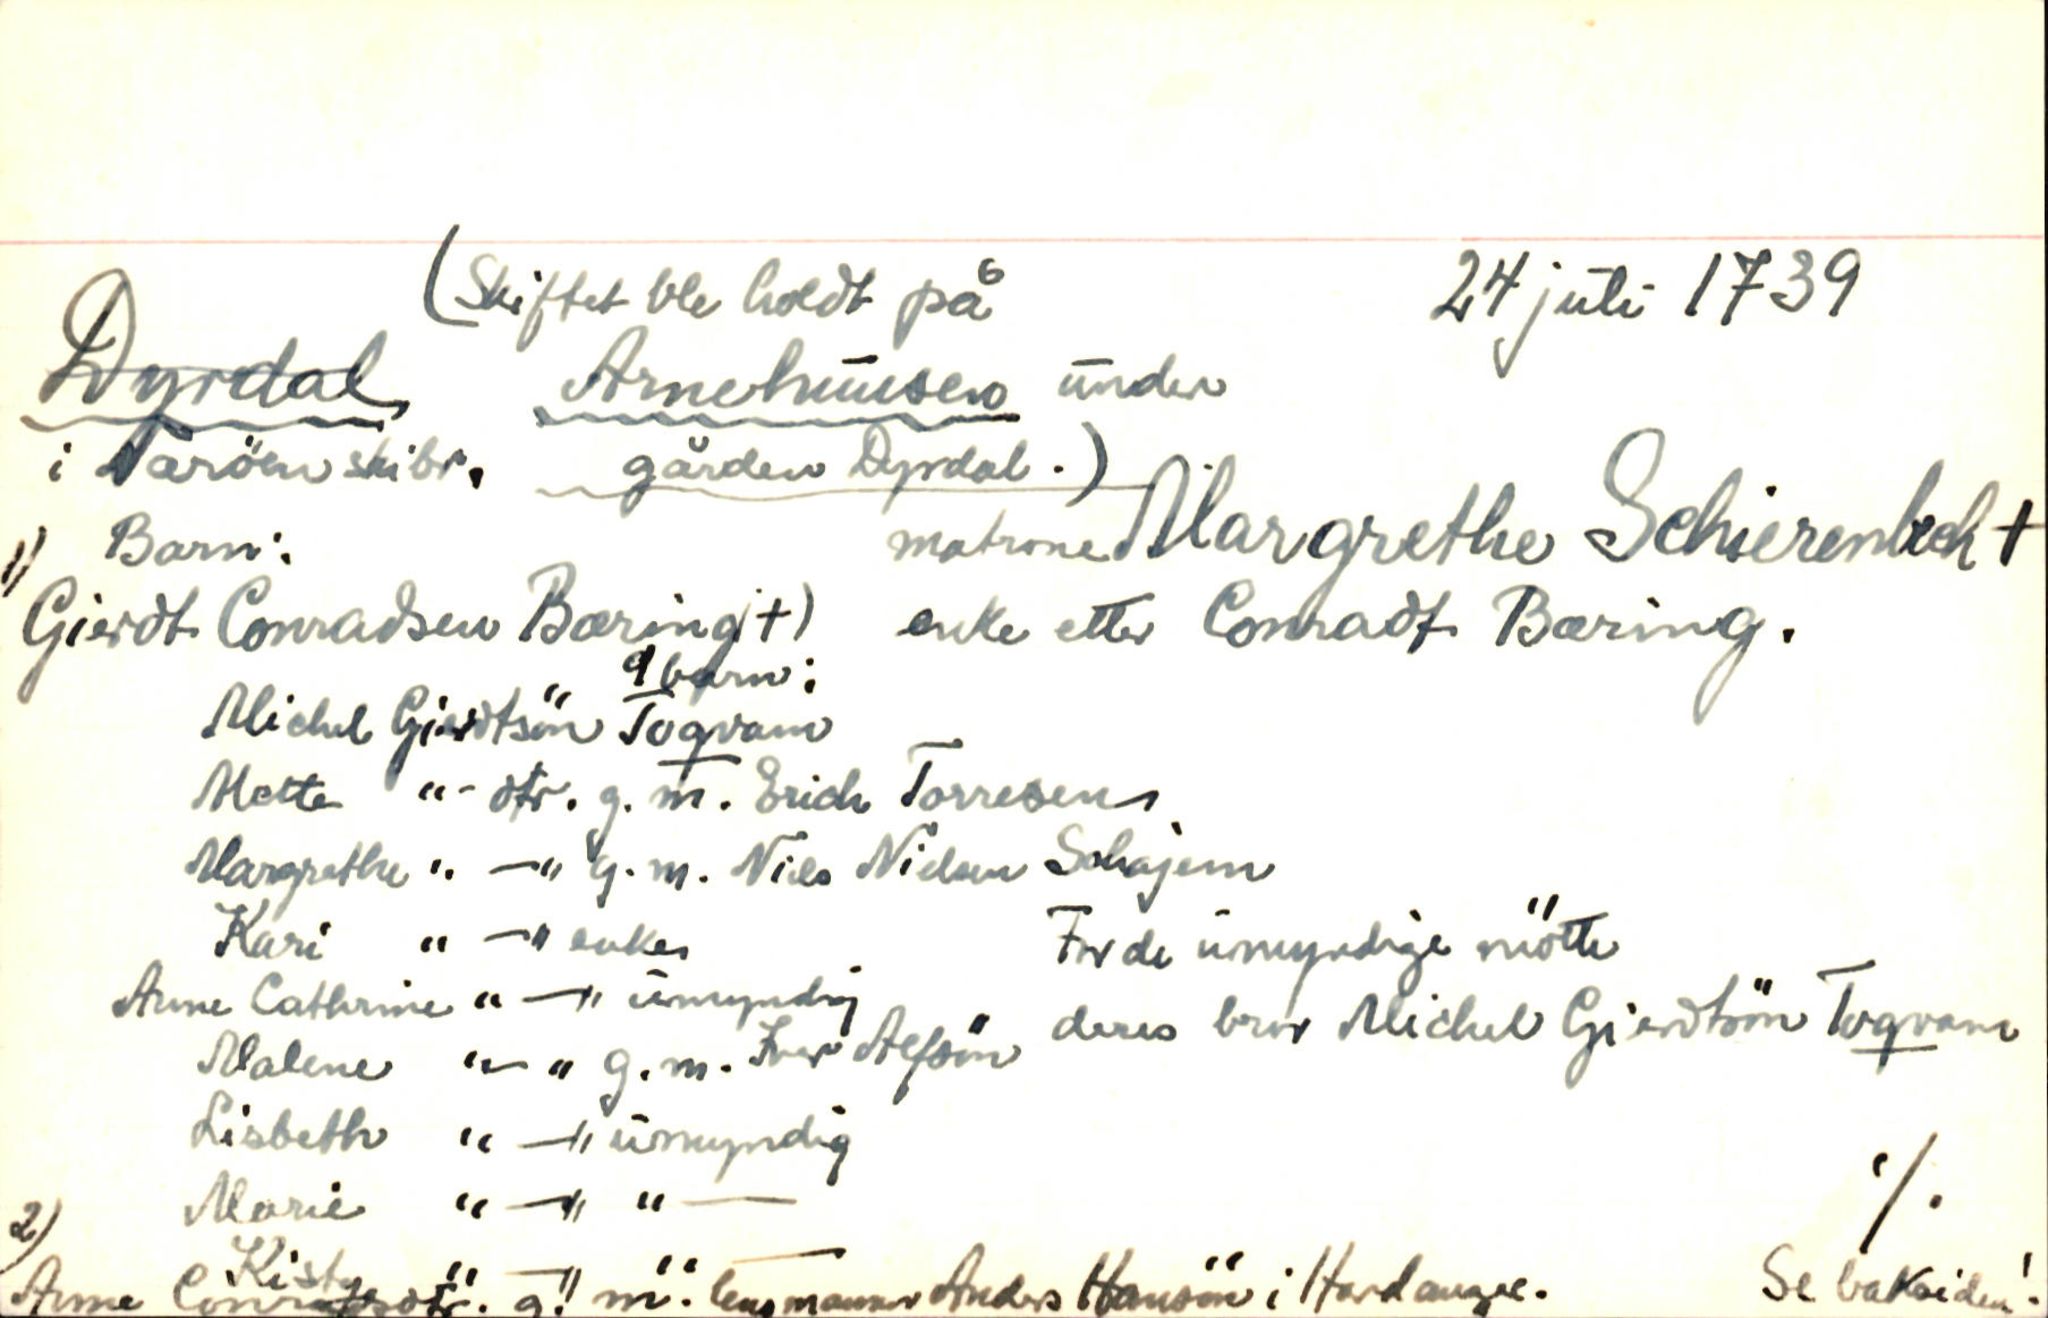 (Skiftet ble holdt på 24 juli 1739
Dyrdal, Arnehuusen under
i Nærøen skibr. gården Dyrdal.)
1) Barn: matrone Margrethe Schierenbech †
Gierdt Conradsen Bæring †) enke etter Conradt Bæring.
9 barn:
Michel Gierdtsön Togvam
Mette "- dtr. g. m. Erich Torresen
Margrethe " —" g. m. Niels Nielsen Schajem
Kari " —" enke, For de umyndige mötte
Anne Cathrine " —" umyndig deres bror Michel Gierdtsön Togvam
Malene " - " g. m. Iver Alfsön
Lisbeth " —" umyndig
Marie " —" " —
Kisty " —" " —
2) Anne Conradsdtr. g. m. lensmannen Anders Hansön i Hardanger.
./.
Se baksiden!